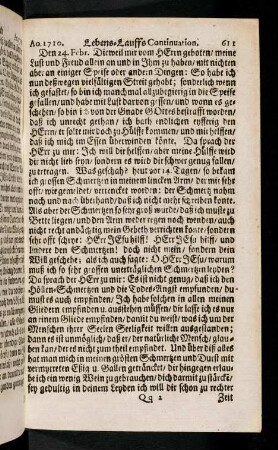 Ao. 1710. Lebens-Lauffs Continuation. 611
Den 24. Febr. Dieweil mir vom HErrn geboten/ meine
Lust und Freud allein an und in Ihm zu haben/ mit nichten
aber an einiger Speise oder andern Dingen: So habe ich
nun deßwegen vielfältigen Streit gehabt; sonderlich wenn
ich gefastet/ so bin ich manchmal allzubegierig in die Speise
gefallen/ und habe mit Lust darvon gessen/ und wann es ge-
schehen/ so bin ich von der Gnade GOttes bestrafft worden/
daß ich unrecht gethan/ ich bath endlichen eyfferig den
HErrn/ er solte mir doch zu Hülff kommen/ und mir helffen/
daß ich mich im Essen überwinden könte. Da sprach der
HErr zu mir: Ich will dir helffen/ aber meine Hülff wird
dir nicht lieb seyn/ sondern es wird dir schwer genug fallen/
zu ertragen. Was geschah? heut vor 14. Tagen/ so bekam
ich grossen Schmertzen in meinem lincken Arm/ der mir sehr
offt/ wegen der verrenckt worden: der Schmertz nahm
nach und nach überhand/ daß ich nicht mehr schreiben konte.
Als aber der Schmertzen so sehr groß wurde/ daß ich muste zu
Bette liegen/ und den Arm weder regen noch wenden/ auch
nicht recht andächtig mein Gebeth verrichten konte/ sondern
sehr offt schrye: HErr JEsu hilff! HErr JEsu hilff/ und
linder den Schmertzen! doch nicht mein/ sondern dein
Will geschehe: als ich auch sagte: O HErr JEsu/ warum
muß ich so sehr grossen unerträglichen Schmertzen leyden?
Da sprach der HErr zu mir: Es ist nicht genug/ daß ich den
Höllen-Schmertzen und die Todes-Angst empfunden/ du
must es auch empfinden/ Ich habe solchen in allen meinen
Gliedern empfunden u. ausstehen müssen/ dir lasse ich es an
einem Gliede empfinden/ damit du weist/ was ich um der
Menschen ihrer Seelen Seeligkeit willen ausgestanden;
dann es ist unmöglich/ daß er/ der natürliche Mensch/ glau-
ben kan/ der es nicht zum theil empfindet. Und über diß alles
hat man mich in meinen grösten Schmertzen und Durst mit
vermyrten Eßig u. Gallen geträncket/ dir hingegen erlau-
be ich ein wenig Wein zu gebrauchen/ dich darmit zu stärcken/
sey gedultig in deinem Leyden ich will dir schon zu rechter
Qq 2 Zeit